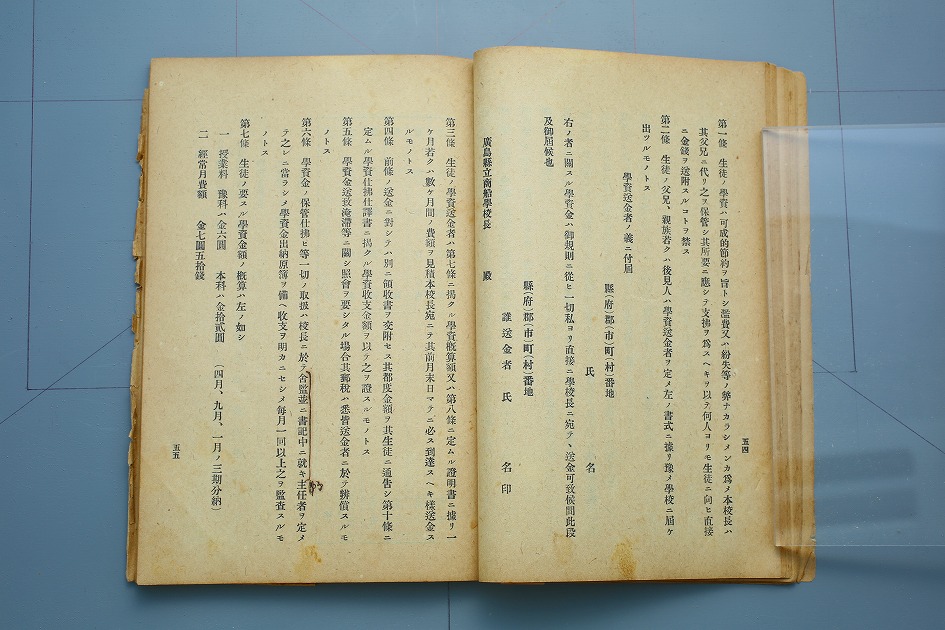 第一條　生徒ノ學資ハ可成的節約ヲ旨トシ濫費又ハ紛失等ノ弊ナカラシメンカ爲メ本校長ハ
其父兄ニ代リ之ヲ保管シ其所要ニ應シテ支拂ヲ爲スヘキヲ以テ何人ヨリモ生徒ニ向ヒ直接
ニ金錢ヲ送附スルコトヲ禁ス
第二條　生徒ノ父兄、親族若クハ後見人ハ學資送金者ヲ定メ左ノ書式ニ據リ豫メ學校ニ届ケ
出ツルモノトス
學資送金者ノ義ニ付届
縣(府)郡(市)町(村)番地
氏　名
右ノ者ニ關スル學資金ハ御規則ニ從ヒ一切私ヨリ直接ニ學校長ニ宛テ、送金可致候間此段
及御届候也
縣(府)郡(市)町(村)番地
送金者　氏　名　印
廣島縣立商船學校長　殿
五四
第三條　生徒ノ學資送金者ハ第七條ニ掲クル學資概算額又ハ第八條ニ定ムル證明書ニ據リ一
ケ月若クハ數ケ月間ノ費額ヲ見積本校長宛ニテ其前月末日マテニ必ス到達スヘキ樣送金ス
ルモノトス
第四條　前條ノ送金ニ對シテハ別ニ領收書ヲ交附セス其都度金額ヲ其生徒ニ通告シ第十條ニ
定ムル學資仕拂仕譯書ニ掲クル學資收支金額ヲ以テ之ヲ證スルモノトス
第五條　學資金送致淹滯等ニ關シ照會ヲ要シタル場合其郵税ハ悉皆送金者ニ於テ辨償スルモ
ノトス
第六條　學資金ノ保管仕拂ヒ等一切ノ取扱ハ校長ニ於テ舍監並ニ書記中ニ就キ主任者ヲ定メ
テ之レニ當ラシメ學資金出納原簿ヲ備ヘ收支ヲ明カニセシメ毎月一回以上之ヲ監査スルモ
ノトス
第七條　生徒ノ要スル學資金額ノ概算ハ左ノ如シ
一　授業料　豫科ハ金六圓　本科ハ金拾貳圓　(四月、九月、一月ノ三期分納)
二　經常月費額　金七圓五拾錢
五五